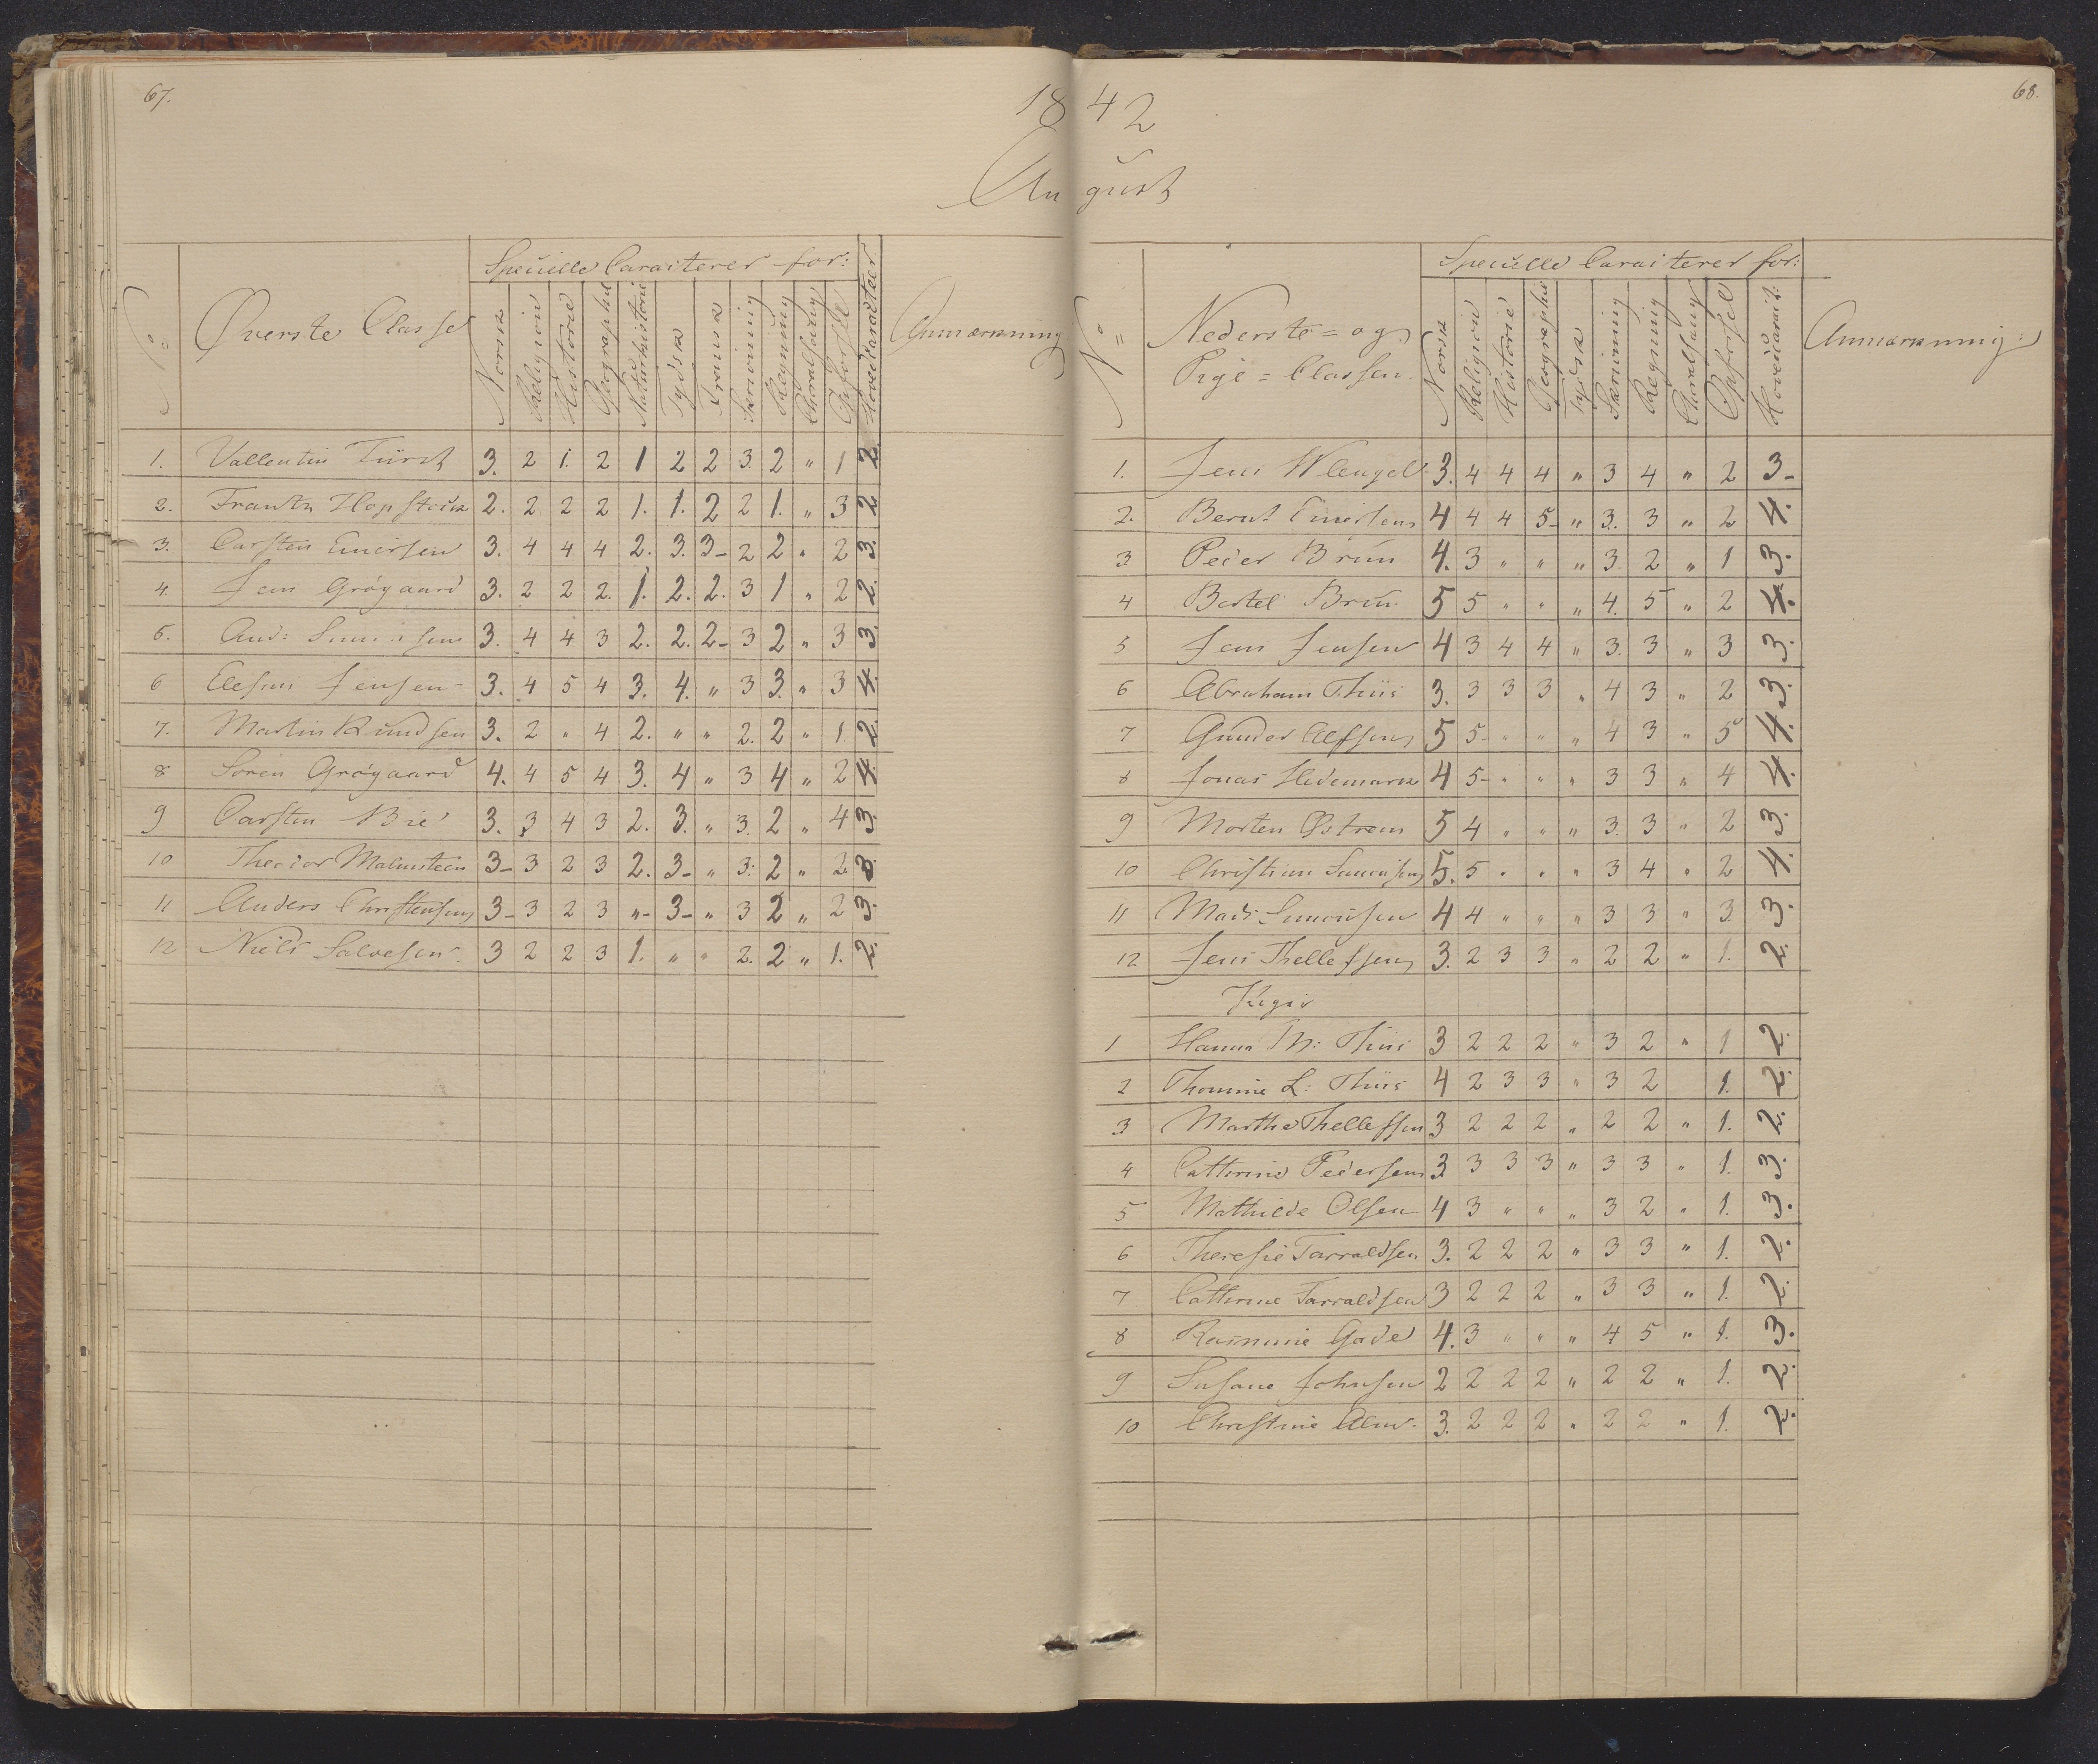 67.
18 42
68.
August
No
Øverste Classe
Specielle Caracterer for:
Norsk
Religion
Historie
Geographie
Naturhistorie
Tydsk
Fransk
Skrivning
Regning
Choralsang
Opførsel
Hovedcaracteer
Anmærkning
1. Vallentin Fürst 3. 2 1. 2 1 2 2 3. 2 " 1 2.
2. Frantz Hopstock 2. 2 2 2 1. 1. 2 2 1. " 3 2
3. Carsten Enersen 3. 4 4 4 2. 3. 3- 2 2 " 2 3.
4. Jens Grøgaard 3. 2 2 2. 1. 2. 2. 3 1 " 2 2.
5. And: Simonsen 3. 4 4 3 2. 2. 2- 3 2 " 3 3.
6 Elesius Jensen 3. 4 5 4 3. 4. " 3 3. " 3 4.
7. Martin Knudsen 3. 2 " 4 2. " " 2. 2 " 1. 2.
8 Søren Grøgaard 4. 4 5 4 3. 4 " 3 4 " 2 4.
9 Carsten Brie 3. 3 4 3 2. 3. " 3. 2 " 4 3.
10 Theodor Malmsteen 3- 3 2 3 2. 3- " 3. 2 " 2. 3.
11 Anders Christensen 3- 3 2 3 "- 3- " 3 2 " 2 3.
12 Niels Salvesen 3 2 2 3 1. " " 2. 2 " 1. 2.
No
Nederste- og
Pige-Classen.
Specielle Caracterer for:
Norsk
Religion
Historie
Geographie
Tydsk
Skrivning
Regning
Choralsang
Opførsel
Hovedcaract:
Anmærkning:
1. Jens Wlengel 3. 4 4 4 " 3 4 " 2 3-
2. Bernt Enersen 4 4 4 5- " 3. 3 " 2 4.
3 Peder Brun 4. 3 " " " 3. 2 " 1 3.
4 Bertel Brun 5 5 " " " 4. 5 " 2 4.
5 Jens Jensen 4 3 4 4 " 3. 3 " 3 3.
6 Abraham Thiis 3. 3 3 3 " 4 3 " 2 3.
7 Gunder Alfsen 5 5- " " " 4 3 " 5 4.
8 Jonas Hedemark 4 5- " " " 3 3 " 4 4.
9 Morten Østrem 5 4 " " " 3. 3 " 2 3.
10 Christian Simonsen 5. 5 " " " 3 4 " 2 4.
11 Mads Simonsen 4 4 " " " 3 3 " 3. 3.
12 Jens Thellefsen 3. 2 3 3 " 2 2 " 1. 2.
Piger
1 Hanna M: Thiis 3 2 2 2 " 3 2 " 1 2.
2 Thomine L: Thiis 4 2 3 3 " 3 2 1. 2.
3 Marthe Thellefsen 3 2 2 2 " 2 2 " 1. 2.
4 Cathrine Pedersen 3 3 3 3 " 3 3 " 1. 3.
5 Mathilde Olsen 4 3 " " " 3 2 " 1. 3.
6 Theresie Tarraldsen 3. 2 2 2 " 3 3 " 1. 2.
7 Cathrine Tarraldsen 3 2 2 2 " 3 3 " 1. 2.
8 Rasmine Gade 4. 3 " " " 4 5 " 1. 3.
9 Susane Johnsen 2 2 2 2 " 2 2 " 1. 2.
10 Christine Alm 3. 2 2 2 " 2 2 " 1. 2.